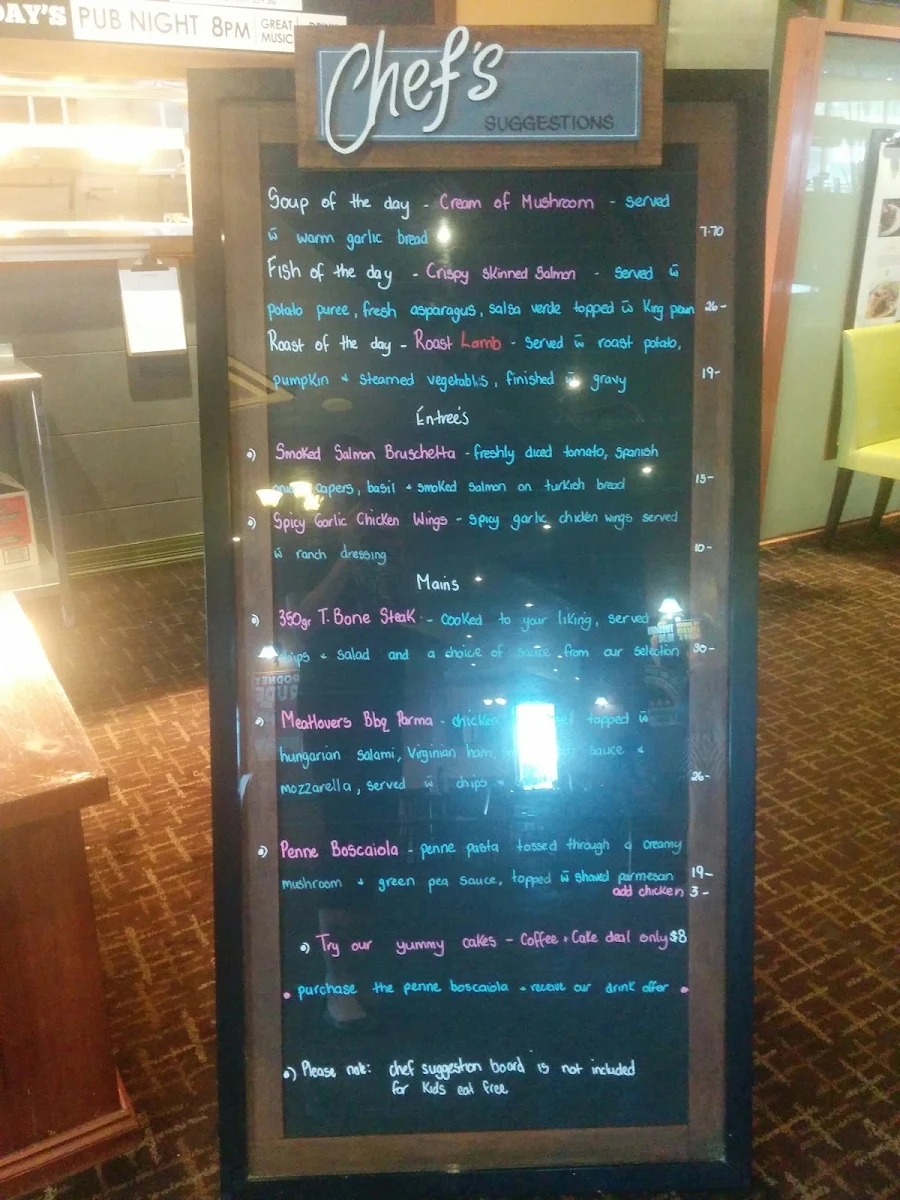 DAY'S
PUB NIGHT 8PM
GREAT
MUSIC
Chef's
SUGGESTIONS
Soup of the day - Cream of Mushroom - served
w̄ warm garlic bread 7-70
Fish of the day - Crispy skinned Salmon - served w̄
potato puree, fresh asparagus, salsa verde topped w̄ King prawn 26-
Roast of the day - Roast Lamb - served w̄ roast potato,
pumpkin + steamed vegetables, finished w̄ gravy 19-
Entree's
Smoked Salmon Bruschetta - freshly diced tomato, spanish
capers, basil + smoked salmon on turkish bread 15-
Spicy Garlic Chicken Wings - spicy garlic chicken wings served
w̄ ranch dressing 10-
Mains
350gr T.Bone Steak - cooked to your liking, served
chips + salad and a choice of sauce from our selection 30-
Meatlovers Bbq Parma - chicken topped w̄
hungarian salami, Virginian ham, sauce +
mozzarella, served w̄ chips + 26-
Penne Boscaiola - penne pasta tossed through a creamy
mushroom + green pea sauce, topped w̄ shaved parmesan 19-
add chicken 3-
Try our yummy cakes - Coffee + Cake deal only $8
purchase the penne boscaiola + receive our drink offer
Please note: chef suggestion board is not included
for Kids eat free